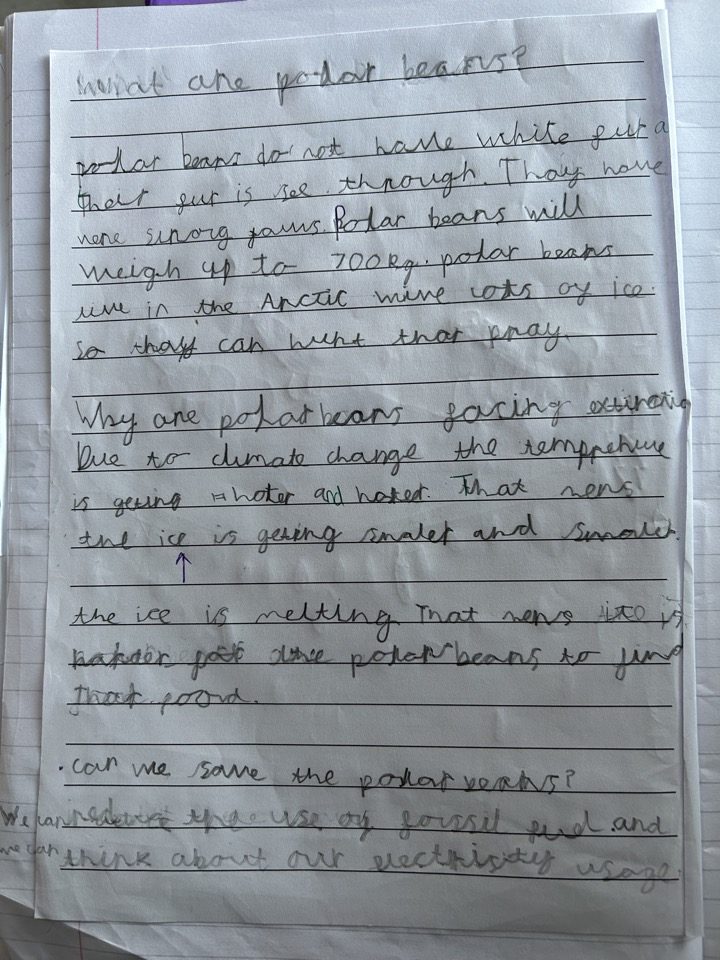 What are polar bears?
polar bears do not have white fur a
their fur is see through. Thay have
vere srorg jaws. Polar bears will
weigh up to 700kg. polar bears
live in the Arctic wive lots of ice.
so thay can hunt thar pray.
Why are polar bears facing extinctio
Due to climate change the tempreture
is geting hoter and hoter. That mens
the ice is geting smaler and smaler.
the ice is melting That mens it is
harder for the polar bears to find
thar food.
. can we save the polar bears?
We can reduce the use of fossil fuel and
we can think about our electristy usage.